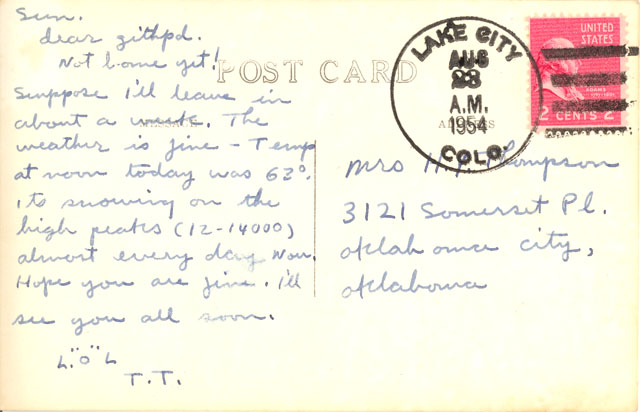 Sun.
dear zithpd.
Not home yet!
POST CARD
Suppose I'll leave in
about a week. The
weather is fine - Temp
at noon today was 62°.
its snowing on the
high peaks (12-14000)
almost every day now.
Hope you are fine. I'll
see you all soon.
L.O.L
T.T.
LAKE CITY
AUG
23
A.M.
1954
COLO.
UNITED
STATES
ADAMS
2 CENTS 2
Mrs H. Thompson
3121 Somerset Pl.
oklahoma city,
oklahoma